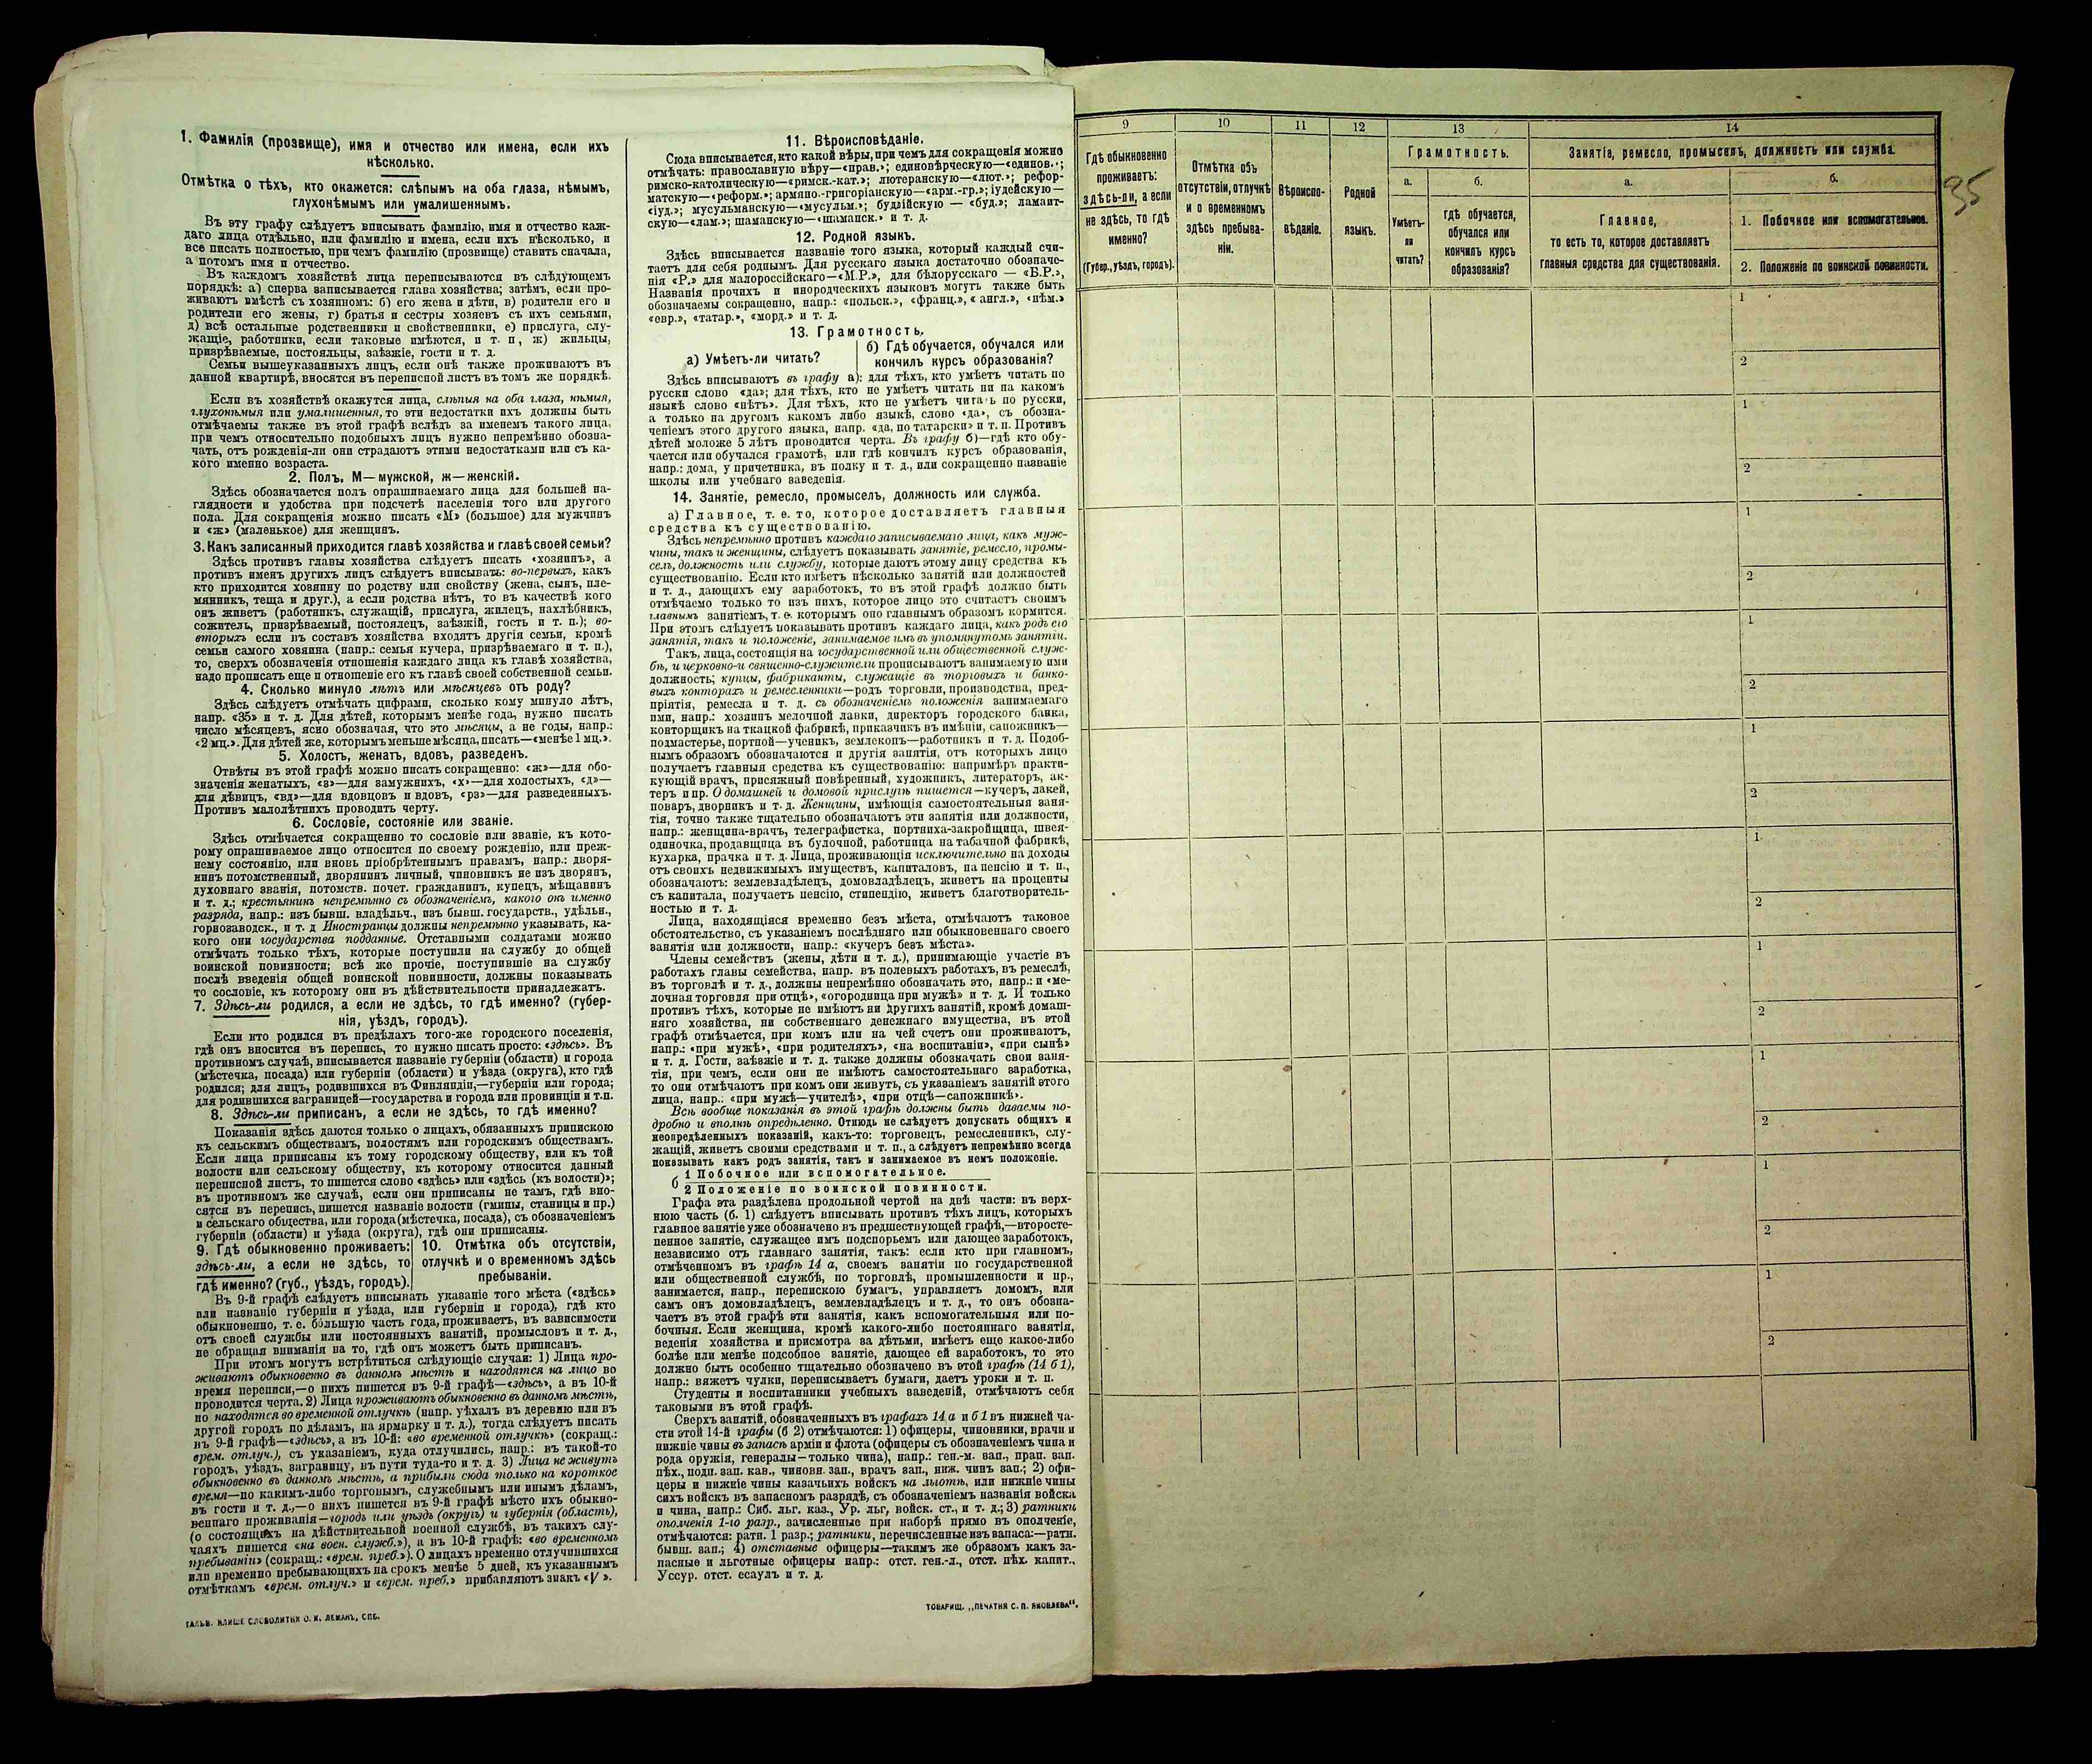 1. Фамилія (прозвище), имя и отчество или имена, если ихъ
нѣсколько.
Отмѣтка о тѣхъ, кто окажется: слѣпымъ на оба глаза, нѣмымъ,
глухонѣмымъ или умалишеннымъ.
Въ эту графу слѣдуетъ вписывать фамилію, имя и отчество каж-
даго лица отдѣльно, или фамилію и имена, если ихъ нѣсколько, и
все писать полностью, при чемъ фамилію (прозвище) ставить сначала,
а потомъ имя и отчество.
Въ каждомъ хозяйствѣ лица переписываются въ слѣдующемъ
порядкѣ: а) сперва записывается глава хозяйства; затѣмъ, если про-
живаютъ вмѣстѣ съ хозяиномъ: б) его жена и дѣти, в) родители его и
родители его жены, г) братья и сестры хозяевъ съ ихъ семьями,
д) всѣ остальные родственники и свойственники, е) прислуга, слу-
жащіе, работники, если таковые имѣются, и т. п, ж) жильцы,
призрѣваемые, постояльцы, заѣзжіе, гости и т. д.
Семьи вышеуказанныхъ лицъ, если онѣ также проживаютъ въ
данной квартирѣ, вносятся въ переписной листъ въ томъ же порядкѣ.
Если въ хозяйствѣ окажутся лица, слѣпыя на оба глаза, нѣмыя,
глухонѣмыя или умалишенныя, то эти недостатки ихъ должны быть
отмѣчаемы также въ этой графѣ вслѣдъ за именемъ такого лица,
при чемъ относительно подобныхъ лицъ нужно непремѣнно обозна-
чать, отъ рожденія-ли они страдаютъ этими недостатками или съ ка-
кого именно возраста.
2. Полъ. М—мужской, ж—женскій.
Здѣсь обозначается полъ опрашиваемаго лица для большей на-
глядности и удобства при подсчетѣ населенія того или другого
пола. Для сокращенія можно писать «М» (большое) для мужчинъ
и «ж» (маленькое) для женщинъ.
3. Какъ записанный приходится главѣ хозяйства и главѣ своей семьи?
Здѣсь противъ главы хозяйства слѣдуетъ писать «хозяинъ», а
противъ именъ другихъ лицъ слѣдуетъ вписывать: во-первыхъ, какъ
кто приходится хозяину по родству или свойству (жена, сынъ, пле-
мянникъ, теща и друг.), а если родства нѣтъ, то въ качествѣ кого
онъ живетъ (работникъ, служащій, прислуга, жилецъ, нахлѣбникъ,
сожитель, призрѣваемый, постоялецъ, заѣзжій, гость и т. п.); во-
вторыхъ если въ составъ хозяйства входятъ другія семьи, кромѣ
семьи самого хозяина (напр.: семья кучера, призрѣваемаго и т. п.),
то, сверхъ обозначенія отношенія каждаго лица къ главѣ хозяйства,
надо прописать еще и отношеніе его къ главѣ своей собственной семьи.
4. Сколько минуло лѣтъ или мѣсяцевъ отъ роду?
Здѣсь слѣдуетъ отмѣчать цифрами, сколько кому минуло лѣтъ,
напр. «35» и т. д. Для дѣтей, которымъ менѣе года, нужно писать
число мѣсяцевъ, ясно обозначая, что это мѣсяцы, а не годы, напр.:
«2 мц.». Для дѣтей же, которымъ меньше мѣсяца, писать—«менѣе 1 мц.».
5. Холостъ, женатъ, вдовъ, разведенъ.
Отвѣты въ этой графѣ можно писать сокращенно: «ж»—для обо-
значенія женатыхъ, «з»—для замужнихъ, «х»—для холостыхъ, «д»—
для дѣвицъ, «вд»—для вдовцовъ и вдовъ, «рз»—для разведенныхъ.
Противъ малолѣтнихъ проводить черту.
6. Сословіе, состояніе или званіе.
Здѣсь отмѣчается сокращенно то сословіе или званіе, къ кото-
рому опрашиваемое лицо относится по своему рожденію, или преж-
нему состоянію, или вновь пріобрѣтеннымъ правамъ, напр.: дворя-
нинъ потомственный, дворянинъ личный, чиновникъ не изъ дворянъ,
духовнаго званія, потомств. почет. гражданинъ, купецъ, мѣщанинъ
и т. д.; крестьянинъ непремѣнно съ обозначеніемъ, какого онъ именно
разряда, напр.: изъ бывш. владѣльч., изъ бывш. государств., удѣльн.,
горнозаводск., и т. д Иностранцы должны непремѣнно указывать, ка-
кого они государства подданные. Отставными солдатами можно
отмѣчать только тѣхъ, которые поступили на службу до общей
воинской повинности; всѣ же прочіе, поступившіе на службу
послѣ введенія общей воинской повинности, должны показывать
то сословіе, къ которому они въ дѣйствительности принадлежатъ.
7. Здѣсь-ли родился, а если не здѣсь, то гдѣ именно? (губер-
нія, уѣздъ, городъ).
Если кто родился въ предѣлахъ того-же городского поселенія,
гдѣ онъ вносится въ перепись, то нужно писать просто: «здѣсь». Въ
противномъ случаѣ, вписывается названіе губерніи (области) и города
(мѣстечка, посада) или губерніи (области) и уѣзда (округа), кто гдѣ
родился; для лицъ, родившихся въ Финляндіи,—губерніи или города;
для родившихся заграницей—государства и города или провинціи и т.п.
8. Здѣсь-ли приписанъ, а если не здѣсь, то гдѣ именно?
Показанія здѣсь даются только о лицахъ, обязанныхъ припискою
къ сельскимъ обществамъ, волостямъ или городскимъ обществамъ.
Если лица приписаны къ тому городскому обществу, или къ той
волости или сельскому обществу, къ которому относится данный
переписной листъ, то пишется слово «здѣсь» или «здѣсь (къ волости)»;
въ противномъ же случаѣ, если они приписаны не тамъ, гдѣ вно-
сятся въ перепись, пишется названіе волости (гмины, станицы и пр.)
и сельскаго общества, или города (мѣстечка, посада), съ обозначеніемъ
губерніи (области) и уѣзда (округа), гдѣ они приписаны.
9. Гдѣ обыкновенно проживаетъ:
здѣсь-ли, а если не здѣсь, то
гдѣ именно? (губ., уѣздъ, городъ).
10. Отмѣтка объ отсутствіи,
отлучкѣ и о временномъ здѣсь
пребываніи.
Въ 9-й графѣ слѣдуетъ вписывать указаніе того мѣста («здѣсь»
или названіе губерніи и уѣзда, или губерніи и города), гдѣ кто
обыкновенно, т. е. бо́льшую часть года, проживаетъ, въ зависимости
отъ своей службы или постоянныхъ занятій, промысловъ и т. д.,
не обращая вниманія на то, гдѣ онъ можетъ быть приписанъ.
При этомъ могутъ встрѣтиться слѣдующіе случаи: 1) Лица про-
живаютъ обыкновенно въ данномъ мѣстѣ и находятся на лицо во
время переписи,—о нихъ пишется въ 9-й графѣ—«здѣсь», а въ 10-й
проводится черта. 2) Лица проживаютъ обыкновенно въ данномъ мѣстѣ,
но находятся во временной отлучкѣ (напр. уѣхалъ въ деревню или въ
другой городъ по дѣламъ, на ярмарку и т. д.), тогда слѣдуетъ писать
въ 9-й графѣ—«здѣсь», а въ 10-й: «во временной отлучкѣ» (сокращ.:
врем. отлуч.), съ указаніемъ, куда отлучились, напр.: въ такой-то
городъ, уѣздъ, заграницу, въ пути туда-то и т. д. 3) Лица не живутъ
обыкновенно въ данномъ мѣстѣ, а прибыли сюда только на короткое
время—по какимъ-либо торговымъ, служебнымъ или инымъ дѣламъ,
въ гости и т. д.,—о нихъ пишется въ 9-й графѣ мѣсто ихъ обыкно-
веннаго проживанія—городъ или уѣздъ (округъ) и губернія (область),
(о состоящихъ на дѣйствительной военной службѣ, въ такихъ слу-
чаяхъ пишется «на воен. служб.»), а въ 10-й графѣ: «во временномъ
пребываніи» (сокращ.: «врем. преб.»). О лицахъ временно отлучившихся
или временно пребывающихъ на срокъ менѣе 5 дней, къ указаннымъ
отмѣткамъ «врем. отлуч.» и «врем. преб.» прибавляютъ знакъ «V».
ГАЛЬВ. КЛИШЕ СЛОВОЛИТНИ О. И. ЛЕМАНЪ, СПБ.
11. Вѣроисповѣданіе.
Сюда вписывается, кто какой вѣры, при чемъ для сокращенія можно
отмѣчать: православную вѣру—«прав.»; единовѣрческую—«единов.»;
римско-католическую—«римск.-кат.»; лютеранскую—«лют.»; рефор-
матскую—«реформ.»; армяно.-григоріанскую—«арм.-гр.»; іудейскую—
«іуд.»; мусульманскую—«мусульм.»; буддійскую — «буд.»; ламаит-
скую—«лам.»; шаманскую—«шаманск.» и т. д.
12. Родной языкъ.
Здѣсь вписывается названіе того языка, который каждый счи-
таетъ для себя роднымъ. Для русскаго языка достаточно обозначе-
нія «Р.» для малороссійскаго—«М.Р.», для бѣлорусскаго — «Б.Р.»,
Названія прочихъ и инородческихъ языковъ могутъ также быть
обозначаемы сокращенно, напр.: «польск.», «франц.», « англ.», «нѣм.»
«евр.», «татар.», «морд.» и т. д.
13. Грамотность.
а) Умѣетъ-ли читать?
б) Гдѣ обучается, обучался или
кончилъ курсъ образованія?
Здѣсь вписываютъ въ графу а): для тѣхъ, кто умѣетъ читать по
русски слово «да»; для тѣхъ, кто не умѣетъ читать ни на какомъ
языкѣ слово «нѣтъ». Для тѣхъ, кто не умѣетъ читать по русски,
а только на другомъ какомъ либо языкѣ, слово «да», съ обозна-
ченіемъ этого другого языка, напр. «да, по татарски» и т. п. Противъ
дѣтей моложе 5 лѣтъ проводится черта. Въ графу б)—гдѣ кто обу-
чается или обучался грамотѣ, или гдѣ кончилъ курсъ образованія,
напр.: дома, у причетника, въ полку и т. д., или сокращенно названіе
школы или учебнаго заведенія.
14. Занятіе, ремесло, промыселъ, должность или служба.
а) Главное, т. е. то, которое доставляетъ главныя
средства къ существованію.
Здѣсь непремѣнно противъ каждаго записываемаго лица, какъ муж-
чины, такъ и женщины, слѣдуетъ показывать занятіе, ремесло, промы-
селъ, должность или службу, которые даютъ этому лицу средства къ
существованію. Если кто имѣетъ нѣсколько занятій или должностей
и т. д., дающихъ ему заработокъ, то въ этой графѣ должно быть
отмѣчаемо только то изъ нихъ, которое лицо это считаетъ своимъ
главнымъ занятіемъ, т. е. которымъ оно главнымъ образомъ кормится.
При этомъ слѣдуетъ показывать противъ каждаго лица, какъ родъ его
занятія, такъ и положеніе, занимаемое имъ въ упомянутомъ занятіи.
Такъ, лица, состоящія на государственной или общественной служ-
бѣ, и церковно-и священно-служители прописываютъ занимаемую ими
должность; купцы, фабриканты, служащіе въ торговыхъ и банко-
выхъ конторахъ и ремесленники—родъ торговли, производства, пред-
пріятія, ремесла и т. д. съ обозначеніемъ положенія занимаемаго
ими, напр.: хозяинъ мелочной лавки, директоръ городского банка,
конторщикъ на ткацкой фабрикѣ, приказчикъ въ имѣніи, сапожникъ—
подмастерье, портной—ученикъ, землекопъ—работникъ и т. д. Подоб-
нымъ образомъ обозначаются и другія занятія, отъ которыхъ лицо
получаетъ главныя средства къ существованію: напримѣръ практи-
кующій врачъ, присяжный повѣренный, художникъ, литераторъ, ак-
теръ и пр. О домашней и домовой прислугѣ пишется—кучеръ, лакей,
поваръ, дворникъ и т. д. Женщины, имѣющія самостоятельныя заня-
тія, точно также тщательно обозначаютъ эти занятія или должности,
напр.: женщина-врачъ, телеграфистка, портниха-закройщица, швея-
одиночка, продавщица въ булочной, работница на табачной фабрикѣ,
кухарка, прачка и т. д. Лица, проживающія исключительно на доходы
отъ своихъ недвижимыхъ имуществъ, капиталовъ, на пенсію и т. п.,
обозначаютъ: землевладѣлецъ, домовладѣлецъ, живетъ на проценты
съ капитала, получаетъ пенсію, стипендію, живетъ благотворитель-
ностью и т. д.
Лица, находящіяся временно безъ мѣста, отмѣчаютъ таковое
обстоятельство, съ указаніемъ послѣдняго или обыкновеннаго своего
занятія или должности, напр.: «кучеръ безъ мѣста».
Члены семействъ (жены, дѣти и т. д.), принимающіе участіе въ
работахъ главы семейства, напр. въ полевыхъ работахъ, въ ремеслѣ,
въ торговлѣ и т. д., должны непремѣнно обозначать это, напр.: и «ме-
лочная торговля при отцѣ», «огородница при мужѣ» и т. д. И только
противъ тѣхъ, которые не имѣютъ ни другихъ занятій, кромѣ домаш-
няго хозяйства, ни собственнаго денежнаго имущества, въ этой
графѣ отмѣчается, при комъ или на чей счетъ они проживаютъ,
напр.: «при мужѣ», «при родителяхъ», «на воспитаніи», «при сынѣ»
и т. д. Гости, заѣзжіе и т. д. также должны обозначать свои заня-
тія, при чемъ, если они не имѣютъ самостоятельнаго заработка,
то они отмѣчаютъ при комъ они живутъ, съ указаніемъ занятій этого
лица, напр.: «при мужѣ—учителѣ», «при отцѣ—сапожникѣ».
Всѣ вообще показанія въ этой графѣ должны быть даваемы по-
дробно и вполнѣ опредѣленно. Отнюдь не слѣдуетъ допускать общихъ и
неопредѣленныхъ показаній, какъ-то: торговецъ, ремесленникъ, слу-
жащій, живетъ своими средствами и т. п., а слѣдуетъ непремѣнно всегда
показывать какъ родъ занятія, такъ и занимаемое въ немъ положеніе.
б
1 Побочное или вспомогательное.
2 Положеніе по воинской повинности.
Графа эта раздѣлена продольной чертой на двѣ части: въ верх-
нюю часть (б. 1) слѣдуетъ вписывать противъ тѣхъ лицъ, которыхъ
главное занятіе уже обозначено въ предшествующей графѣ,—второсте-
пенное занятіе, служащее имъ подспорьемъ или дающее заработокъ,
независимо отъ главнаго занятія, такъ: если кто при главномъ,
отмѣченномъ въ графѣ 14 а, своемъ занятіи по государственной
или общественной службѣ, по торговлѣ, промышленности и пр.,
занимается, напр., перепискою бумагъ, управляетъ домомъ, или
самъ онъ домовладѣлецъ, землевладѣлецъ и т. д., то онъ обозна-
чаетъ въ этой графѣ эти занятія, какъ вспомогательныя или по-
бочныя. Если женщина, кромѣ какого-либо постояннаго занятія,
веденія хозяйства и присмотра за дѣтьми, имѣетъ еще какое-либо
болѣе или менѣе подсобное занятіе, дающее ей заработокъ, то это
должно быть особенно тщательно обозначено въ этой графѣ (14 б 1),
напр.: вяжетъ чулки, переписываетъ бумаги, даетъ уроки и т. п.
Студенты и воспитанники учебныхъ заведеній, отмѣчаютъ себя
таковыми въ этой графѣ.
Сверхъ занятій, обозначенныхъ въ графахъ 14 а и б 1 въ нижней ча-
сти этой 14-й графы (б 2) отмѣчаются: 1) офицеры, чиновники, врачи и
нижніе чины въ запасѣ арміи и флота (офицеры съ обозначеніемъ чина и
рода оружія, генералы—только чина), напр.: ген.-м. зап., прап. зап.
пѣх., подп. зап. кав., чиновн. зап., врачъ зап., ниж. чинъ зап.; 2) офи-
церы и нижніе чины казачьихъ войскъ на льготѣ, или нижніе чины
сихъ войскъ въ запасномъ разрядѣ, съ обозначеніемъ названія войска
и чина, напр.: Сиб. льг. каз., Ур. льг, войск. ст., и т. д.; 3) ратники
ополченія 1-го разр., зачисленные при наборѣ прямо въ ополченіе,
отмѣчаются: ратн. 1 разр.; ратники, перечисленные изъ запаса:—ратн.
бывш. зап.; 4) отставные офицеры—такимъ же образомъ какъ за-
пасные и льготные офицеры напр.: отст. ген.-л., отст. пѣх. капит.,
Уссур. отст. есаулъ и т. д.
ТОВАРИЩ. „ПЕЧАТНЯ С. П. ЯКОВЛЕВА“.
9
10
11
12
13
14
Гдѣ обыкновенно
проживаетъ:
здѣсь-ли, а если
не здѣсь, то гдѣ
именно?
(Губер., уѣздъ, городъ).
Отмѣтка объ
отсутствіи, отлучкѣ
и о временномъ
здѣсь пребыва-
ніи.
Вѣроиспо-
вѣданіе.
Родной
языкъ.
Грамотность.
а.
Умѣетъ-
ли
читать?
б.
гдѣ обучается,
обучался или
кончилъ курсъ
образованія?
Занятіе, ремесло, промыселъ, должность или служба.
а.
Главное,
то есть то, которое доставляетъ
главныя средства для существованія.
б.
1. Побочное или вспомогательное.
2. Положеніе по воинской повинности.
35
1
2
1
2
1
2
1
2
1
2
1
2
1
2
1
2
1
2
1
2